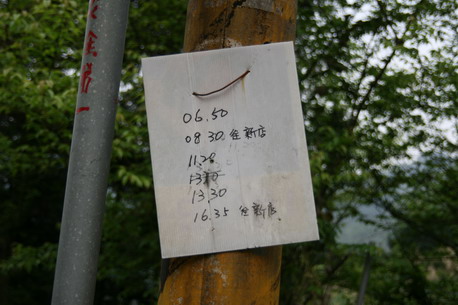 06.50
08 30 往新店
11.20
13.30
16.35 往新店